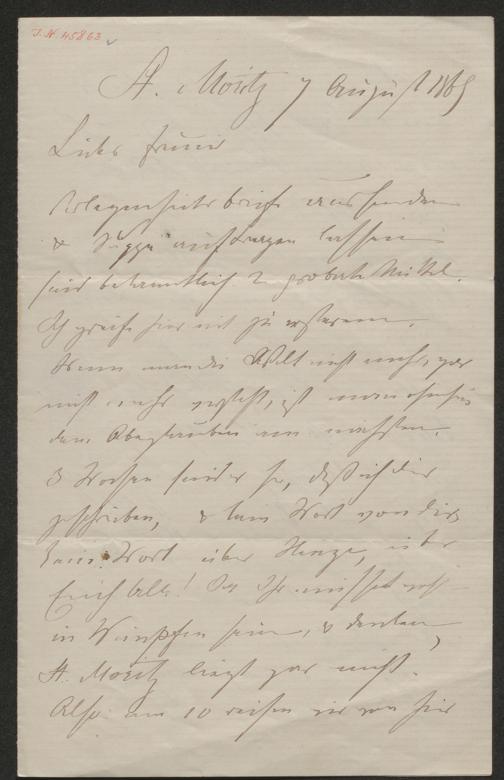 J.N. 45863
St. Moritz 7 August 1869
Liebe Freunde
Verlegenheitsbriefe aussenden
& Suppe auftragen lassen
sind bekanntlich 2 probate Mittel.
Ich greife hiermit zu ersterem.
Wenn man die Welt nicht mehr, gar
nicht mehr versteht, ist man ohnehin
dem Aberglauben am nächsten.
3 Wochen sind es her, daß ich dir
geschrieben, & kein Wort von dir,
kein Wort über, über
Euch alle! Ihr müsset noch
in Wimpfen sein, & denken,
St. Moritz liegt gar nicht.
Also am 10 reisen wir von hier